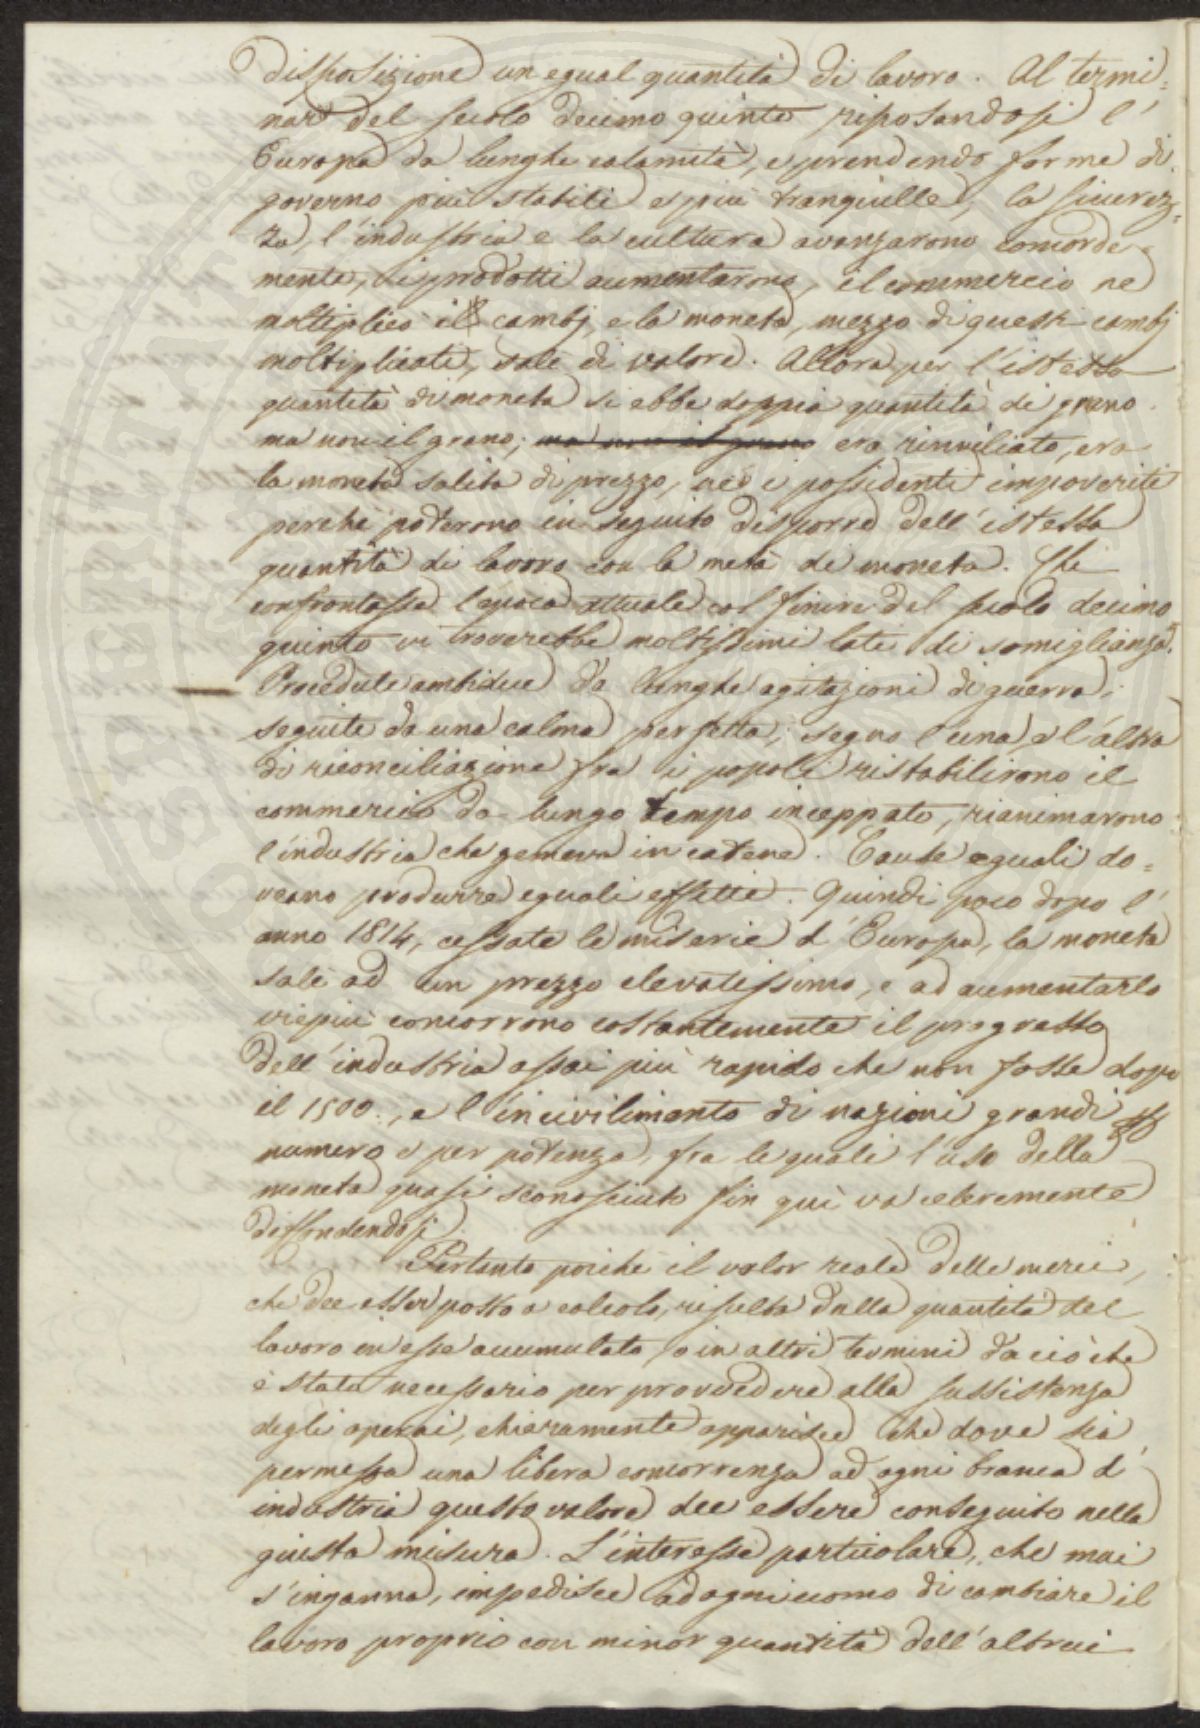 disposizione un egual quantità di lavoro. Al termi=
nare del secolo decimo quinto riposandosi l'
Europa da lunghe calamità, e prendendo forme di
governo più stabili e più tranquille, la sicurez=
za, l'industria e la cultura avanzarono concorde=
mente, i prodotti aumentarono, il commercio ne
moltiplicò i cambj, e la moneta, mezzo di questi cambj
moltiplicati, salì di valore. Allora per l'istessa
quantità di moneta si ebbe doppia quantità di grano
ma non il grano, ma non il grano era rinviliato, era
la moneta salita di prezzo, nè i possidenti impoveriti
perchè poterono in seguito disporre dell'istessa
quantità di lavoro con la metà di moneta. Chi
confrontasse l'epoca attuale col finire del secolo decimo
quinto vi troverebbe moltissimi lati di somiglianza.
Procedute ambidue da lunghe agitazioni di guerra,
seguite da una calma perfetta, segno l'una e l'altra
di riconciliazione fra i popoli ristabilirono il
commercio da lungo tempo inceppato, rianimarono
l'industria che gemeva in catene. Cause eguali do=
veano produrre eguali effetti. Quindi poco dopo l'
anno 1814, cessate le miserie d'Europa, la moneta
salì ad un prezzo elevatissimo, e ad aumentarlo
viepiù concorrono costantemente il progresso
dell'industria assai più rapido che non fosse dopo
il 1500., e l'incivilimento di nazioni grandi per
numero e per potenza, fra le quali l'uso della
moneta quasi sconosciuto fin quì va celeremente
diffondendosi.
Pertanto poichè il valor reale delle merci,
che dee esser posto a calcolo, risulta dalla quantità del
lavoro in esse accumulato, o in altri termini da ciò che
è stato necessario per provvedere alla sussistenza
degli operai, chiaramente apparisce che dove sia
permessa una libera concorrenza ad ogni branca d'
industria questo valore dee essere conseguito nella
giusta misura. L'interesse particolare, che mai
s'inganna, impedisce ad ogni uomo di cambiare il
lavoro proprio con minor quantità dell'altrui